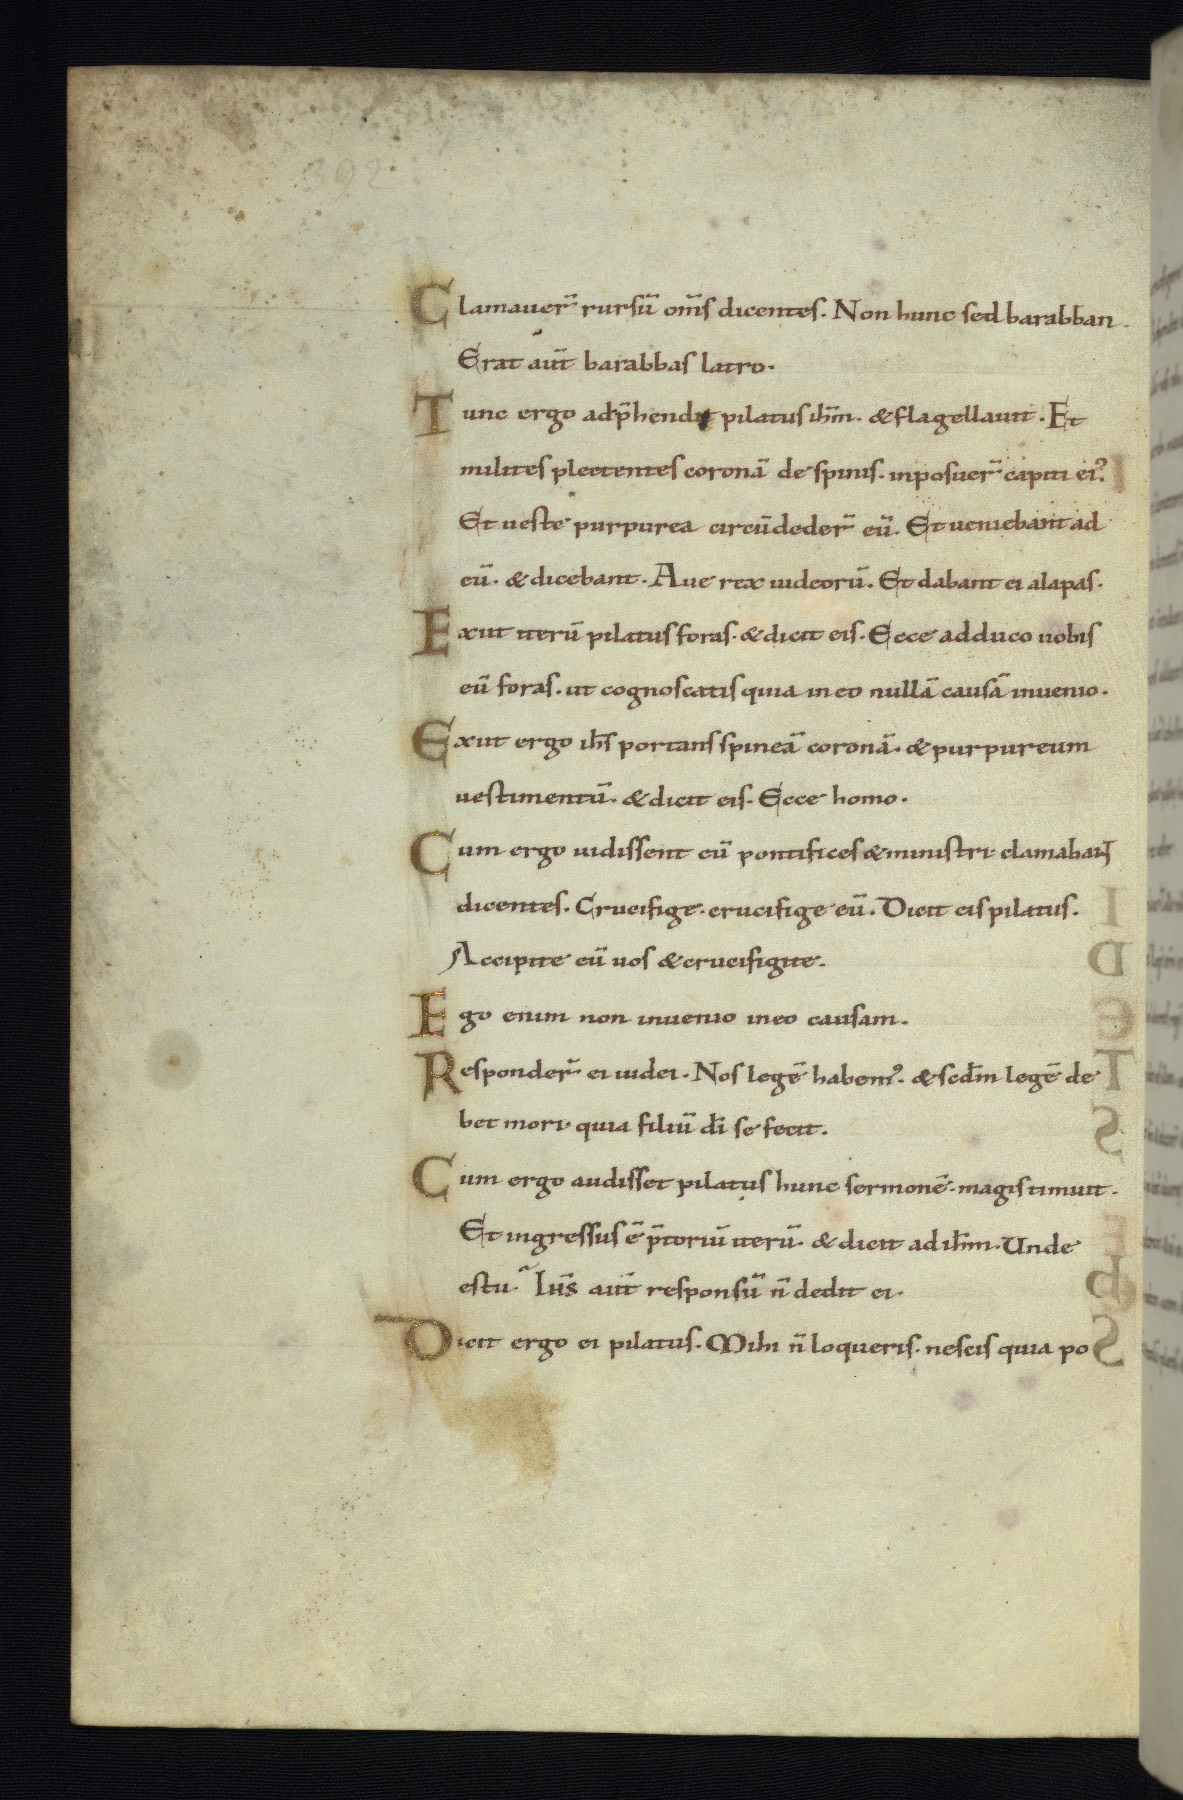 392
Clamauer̄ rursū om̄s dicentes. Non hunc sed barabban.
Erat aut̄ barabbas latro.
Tunc ergo adp̄hendit pilatus ih̄m. & flagellauit. Et
milites plectentes coronā de spinis. inposuer̄ capiti ei᾽.
Et ueste purpurea circūdeder̄ eū. Et ueniebant ad
eū. & dicebant. Aue rex iudeorū. Et dabant ei alapas.
Exiit iterū pilatus foras. & dicit eis. Ecce adduco uobis
eū foras. ut cognoscatis quia in eo nullā causā inuenio.
Exiit ergo ih̄s portans spineā coronā. & purpureum
uestimentū. & dicit eis. Ecce homo.
Cum ergo uidissent eū pontifices & ministri clamabant
dicentes. Crucifige. crucifige eū. Dicit eis pilatus.
Accipite eū uos & crucifigite.
Ego enim non inuenio in eo causam.
Responder̄ ei iudei. Nos legē habem᾽. & scd̄m legē de
bet mori. quia filiū dī se fecit.
Cum ergo audisset pilatus hunc sermonē. magis timuit.
Et ingressus ē p̄toriū iterū. & dicit ad ih̄m. Unde
es tu. Ih̄s aut̄ responsū n̄ dedit ei.
Dicit ergo ei pilatus. Mihi n̄ loqueris. nescis quia po